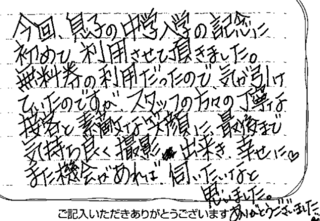 今回、息子の中学入学の記念に
初めて、利用させて頂きました。
無料券の利用だったので、気が引け
ていたのですが、スタッフの方々の丁寧な
接客と素敵な笑顔に、最後まで
気持ち良く撮影出来、幸せに♡
また機会があれば、伺いたいなと
思いました。
ありがとうございました
ご記入いただきありがとうございます